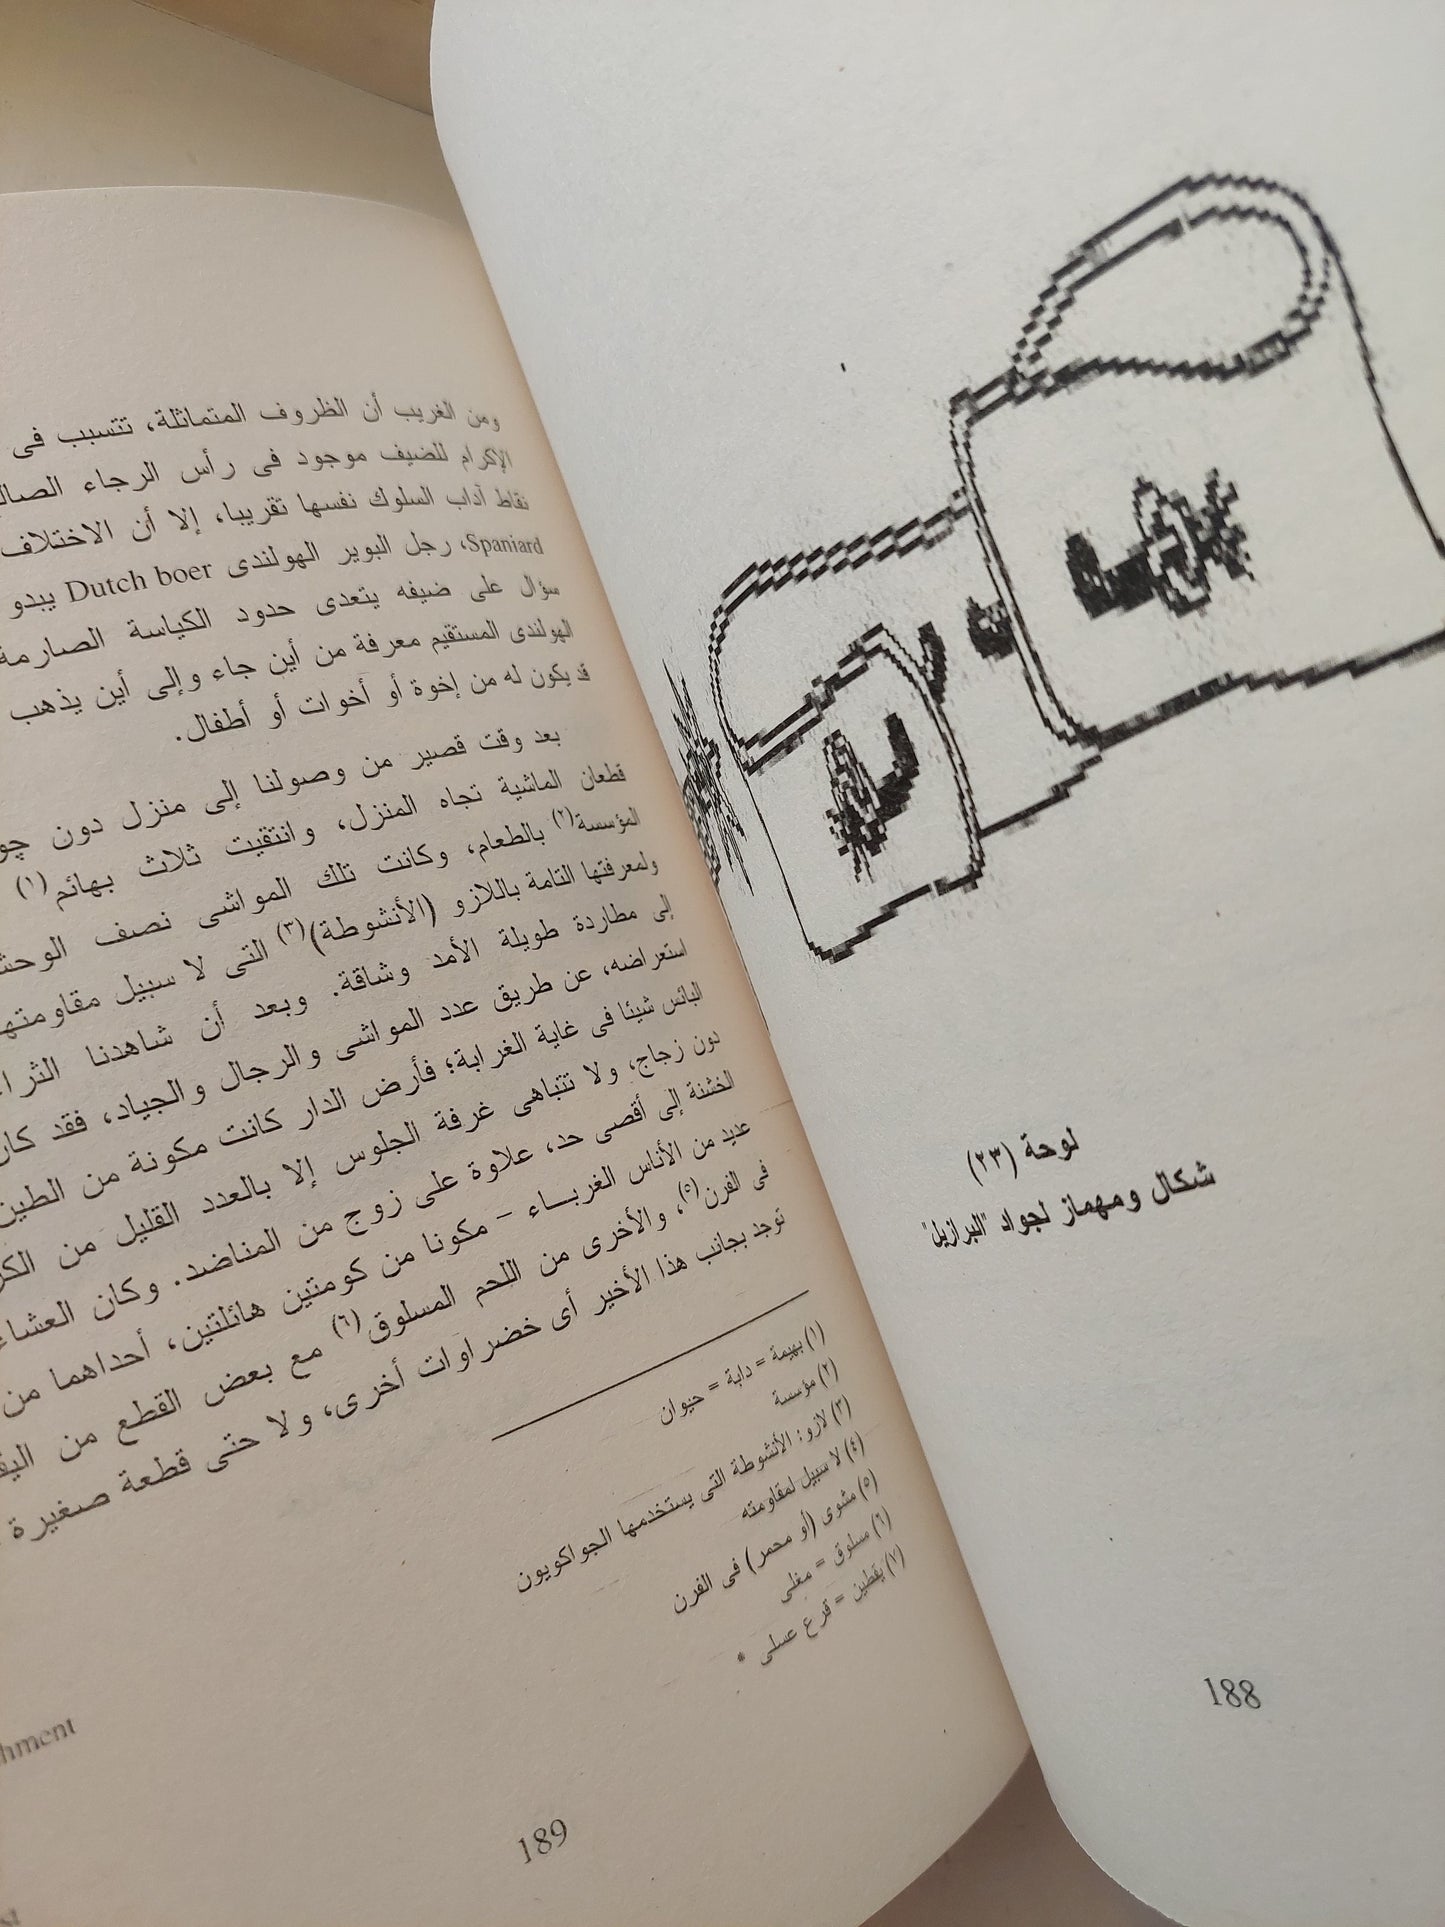 لوحة (٢٣)
شكال ومهماز لجواد "البرازيل"
188
ومن الغريب أن الظروف المتماثلة، تتسبب فى
الإكرام للضيف موجود فى رأس الرجاء
نقاط آداب السلوك نفسها تقريبا، إلا أن الاختلاف
Spaniard، رجل البوير الهولندى Dutch boer يبدو
سؤال على ضيفه يتعدى حدود الكياسة الصارمة
الهولندى المستقيم معرفة من أين جاء وإلى أين يذهب
قد يكون له من إخوة أو أخوات أو أطفال.
بعد وقت قصير من وصولنا إلى منزل دون
قطعان الماشية تجاه المنزل، وانتقيت ثلاث بهائم(١)
المؤسسة(٢) بالطعام، وكانت تلك المواشى نصف
ولمعرفتها التامة باللازو (الأنشوطة)(٣) التى لا سبيل
إلى مطاردة طويلة الأمد وشاقة. وبعد أن شاهدنا
استعراضه، عن طريق عدد المواشى والرجال والجياد، فقد
البائس شيئا فى غاية الغرابة؛ فأرض الدار كانت مكونة من
دون زجاج، ولا تتباهى غرفة الجلوس إلا بالعدد القليل من
الخشنة إلى أقصى حد، علاوة على زوج من المناضد. وكان
عديد من الأناس الغربـاء - مكونا من كومتين هائلتين، أحداهما من
فى الفرن(٥)، والأخرى من اللحم المسلوق(٦) مع بعض القطع من
توجد بجانب هذا الأخير أى خضراوات أخرى، ولا حتى قطعة صغيرة
(١) بهيمة = دابة = حيوان
(٢) مؤسسة
(٣) لازو: الأنشوطة التى يستخدمها الجواكويون
(٤) لا سبيل لمقاومته
(٥) مشوى (أو محمر) فى الفرن
(٦) مسلوق = مغلى
(٧) يقطين = قرع عسلى *
189